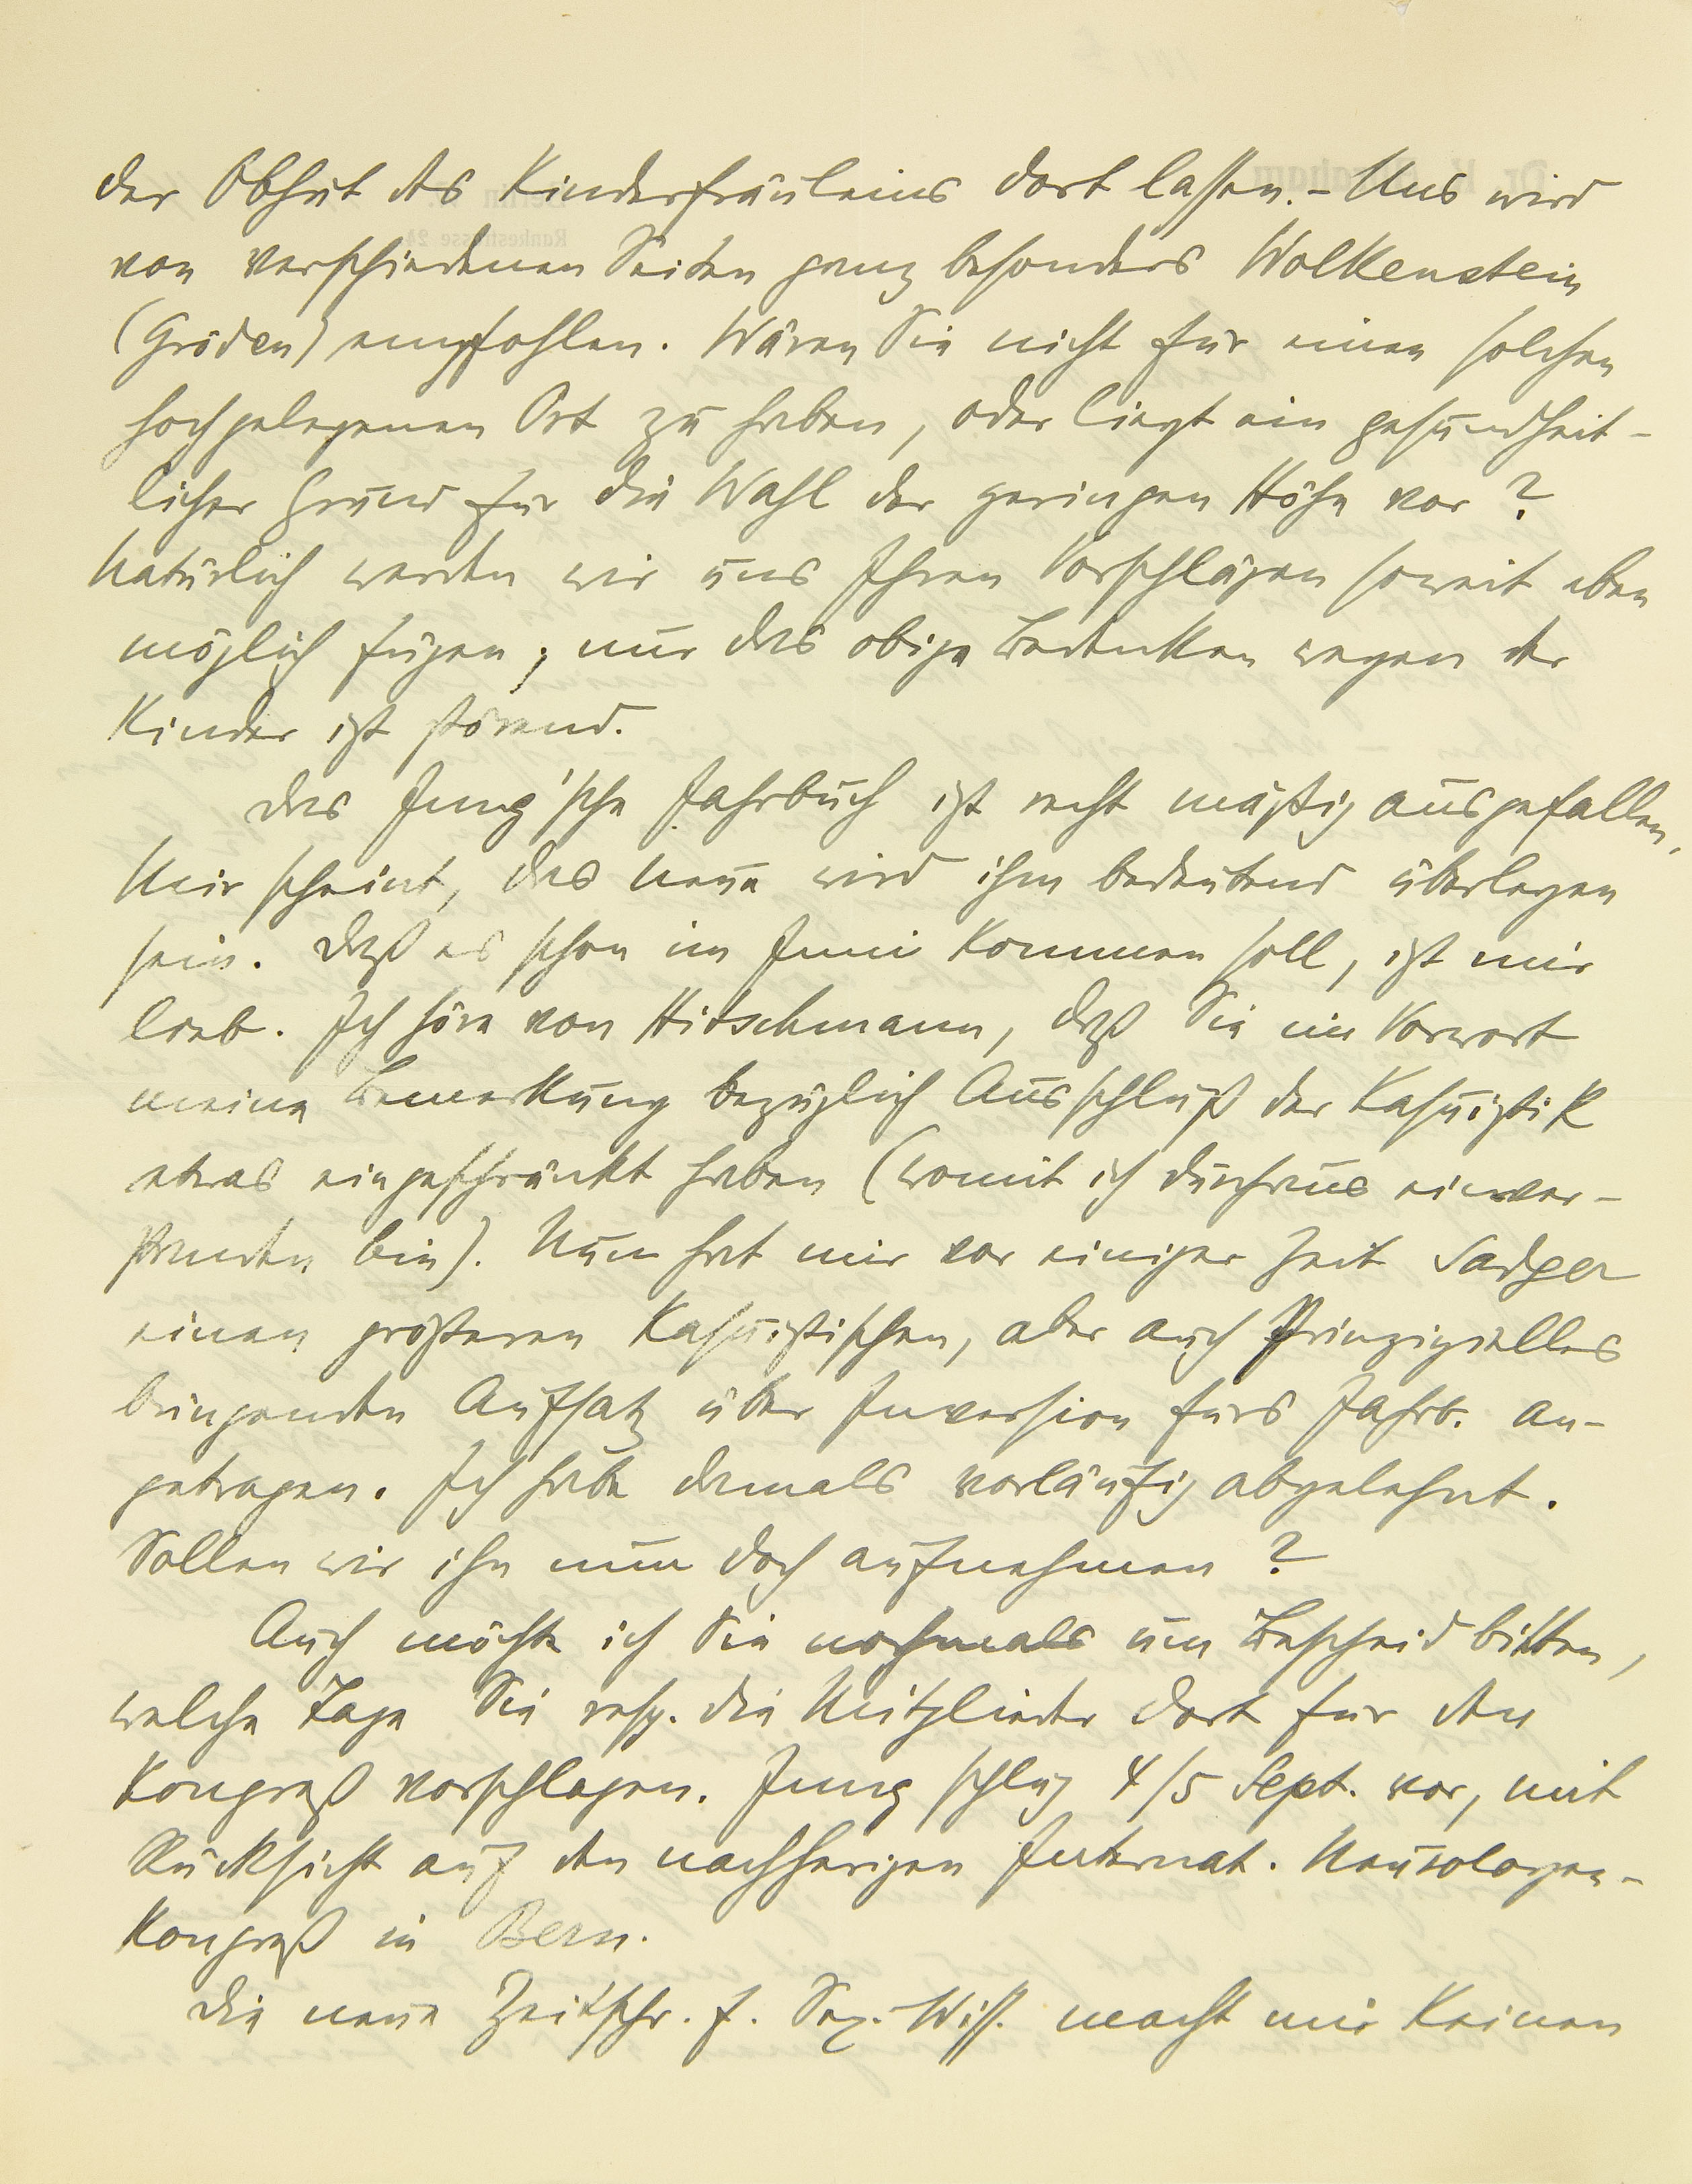 der Obhut des Kinderfräuleins dort lassen. – Uns wird
von verschiedenen Seiten ganz besonders Wolkenstein
(Gröden) empfohlen. Wären Sie nicht für einen solchen
hochgelegenen Ort zu haben, oder liegt ein gesundheit-
licher Grund für die Wahl der geringen Höhe vor?
Natürlich werden wir uns Ihren Vorschlägen soweit eben
möglich fügen; nur das obige Bedenken wegen der
Kinder ist störend.
Das Jung'sche Jahrbuch ist recht mäßig ausgefallen,
Mir scheint, das neue wird ihm bedeutend überlegen
sein. Daß es schon im Juni kommen soll, ist mir
lieb. Ich höre von Hitschmann, daß Sie im Vorwort
meine Bemerkung bezüglich Ausschluß der Kasuistik
etwas eingeschränkt haben (womit ich durchaus einver-
standen bin). Nun hat mir vor einiger Zeit Sadger
einen größeren kasuistischen, aber auch Prinzipielles
bringenden Aufsatz über Inversion fürs Jahrb. an-
getragen. Ich habe damals vorläufig abgelehnt.
Sollen wir ihn nun doch aufnehmen?
Auch möchte ich Sie nochmals um Bescheid bitten,
welche Tage Sie resp. die Mitglieder dort für den
Kongreß vorschlagen. Jung schlug 4/5 Sept. vor, mit
Rücksicht auf den nachherigen Internat. Neurologen-
Kongreß in Bern.
Die neue Zeitschr. f. Sex.-Wiss. macht mir keinen